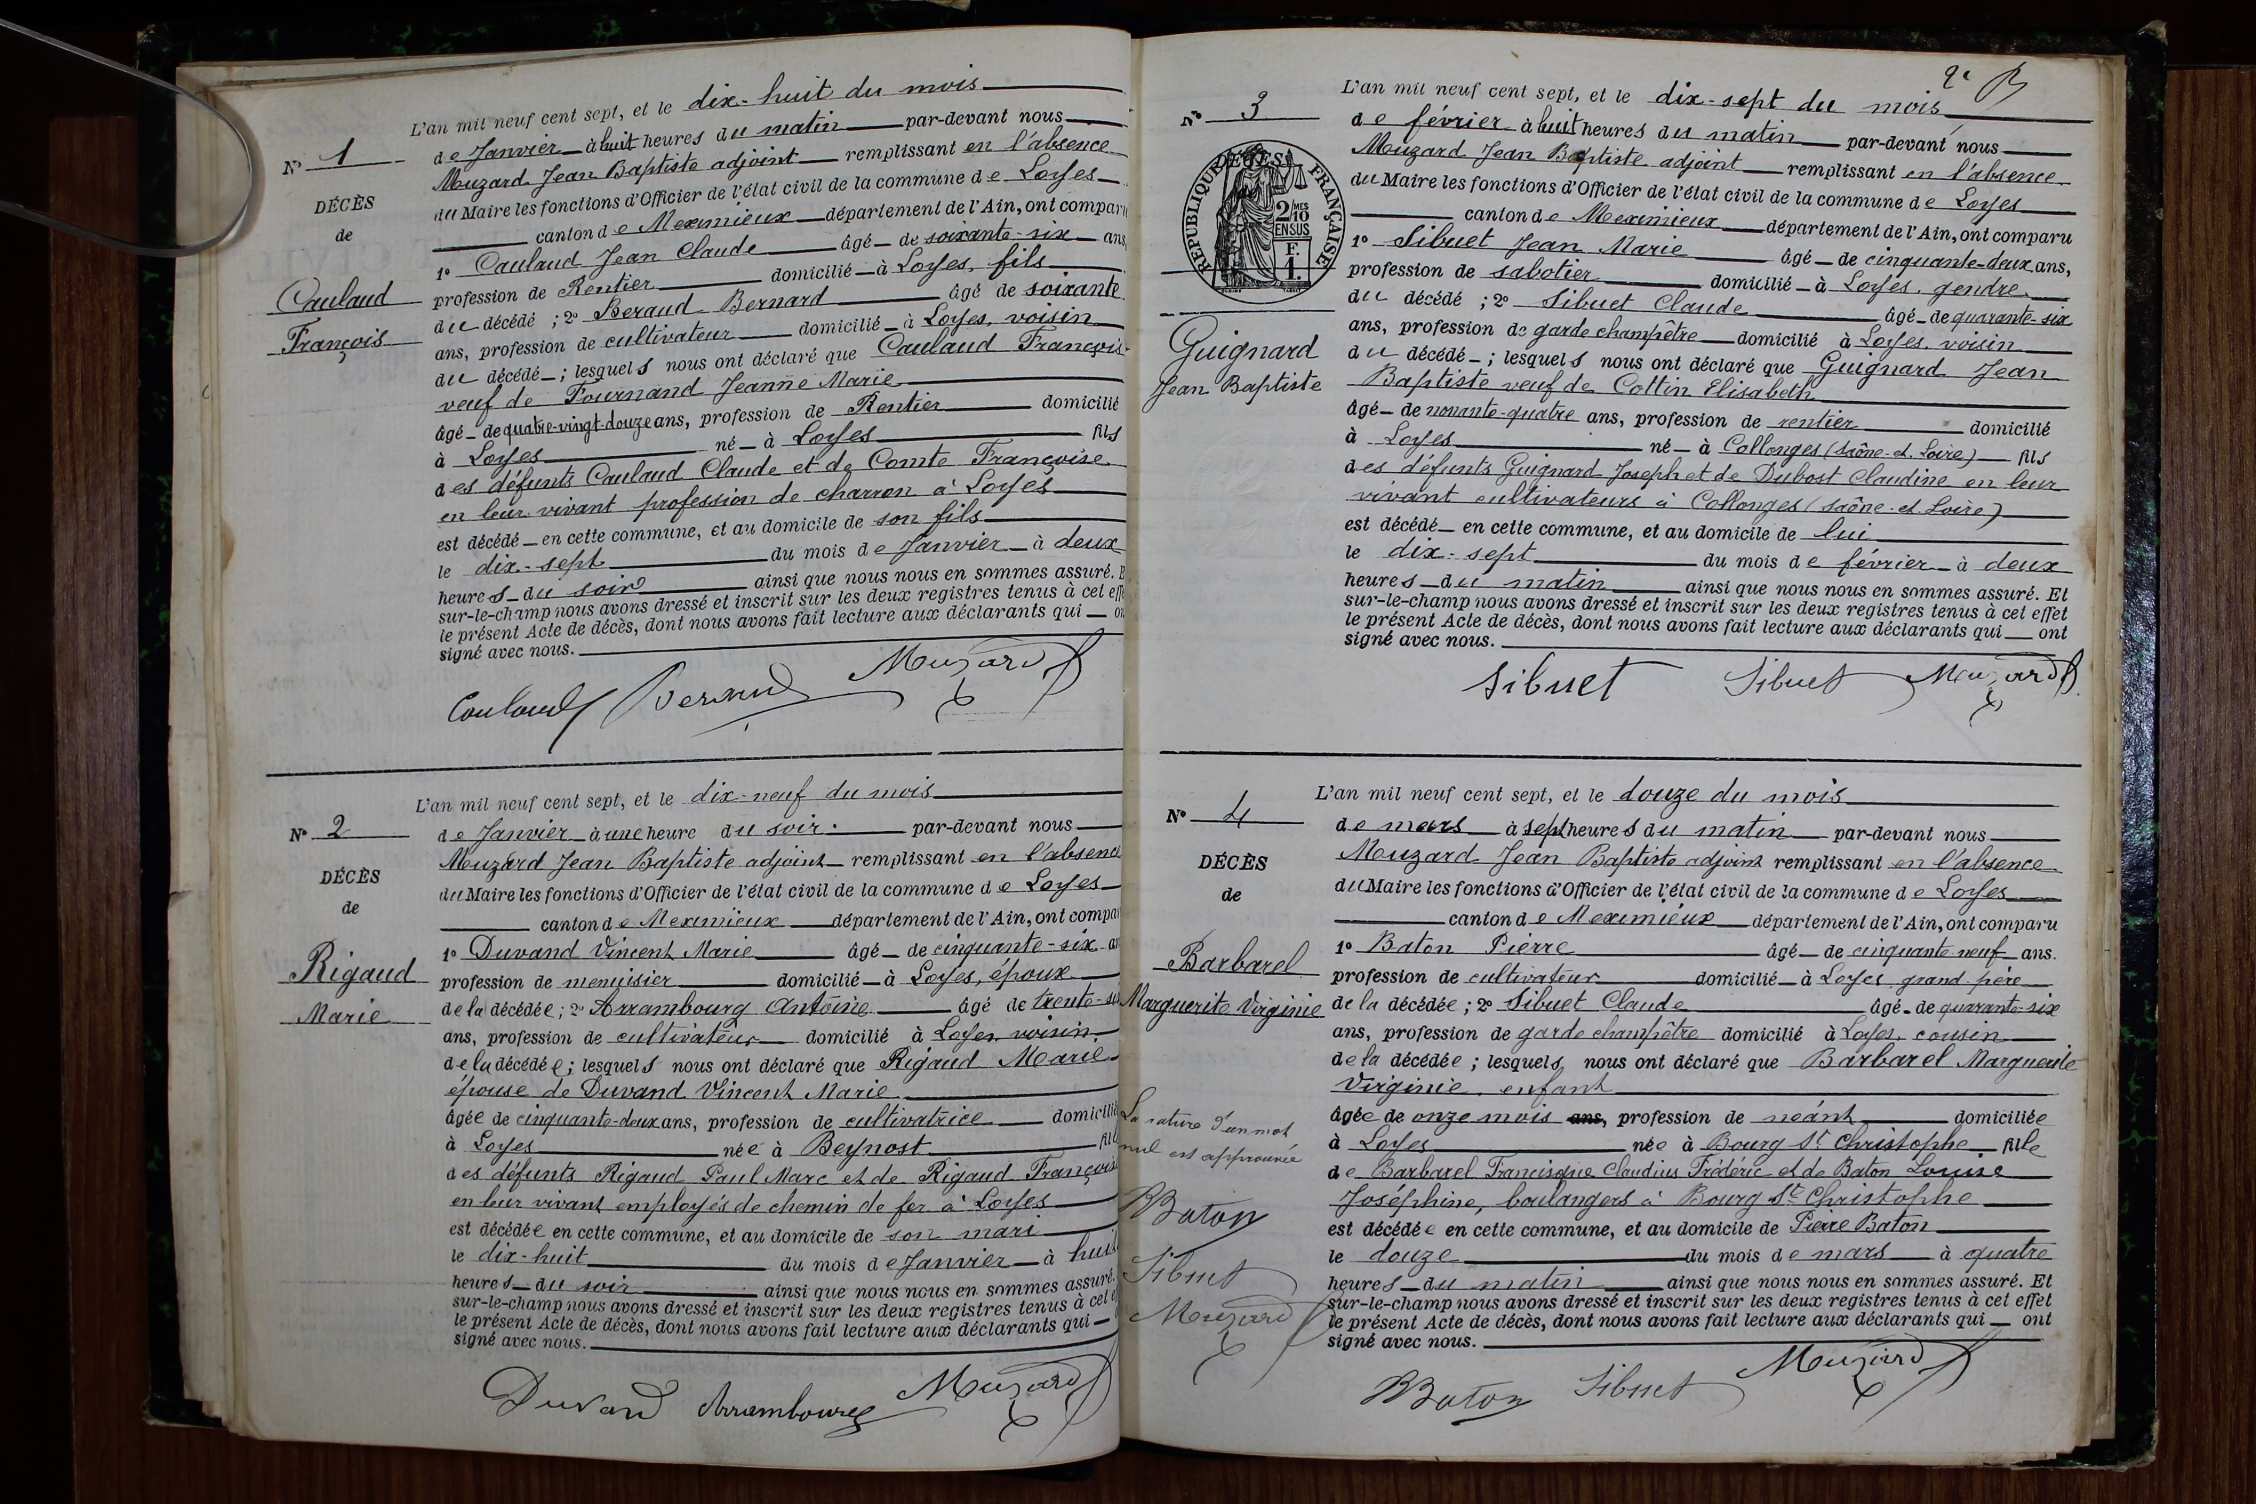 L'an mil neuf cent sept, et le dix-huit du mois
N° 1
de Janvier à huit heures du matin par-devant nous
Muzard Jean Baptiste adjoint remplissant en l'absence
DÉCÈS
du Maire les fonctions d'Officier de l'état civil de la commune de Loyes
de
canton de Meximieux département de l'Ain, ont comparu
1° Caulaud Jean Claude âgé de soixante-six ans,
Caulaud
profession de Rentier domicilié à Loyes, fils
François
du décédé ; 2° Beraud Bernard âgé de soixante
ans, profession de cultivateur domicilié à Loyes, voisin
du décédé ; lesquels nous ont déclaré que Caulaud François
veuf de Fournand Jeanne Marie
âgé de quatre-vingt-douze ans, profession de Rentier domicilié
à Loyes né à Loyes fils
des défunts Caulaud Claude et de Comte Françoise
en leur vivant profession de charron à Loyes
est décédé en cette commune, et au domicile de son fils
le dix-sept du mois de Janvier à deux
heures du soir ainsi que nous nous en sommes assuré. E
sur-le-champ nous avons dressé et inscrit sur les deux registres tenus à cet effe
le présent Acte de décès, dont nous avons fait lecture aux déclarants qui on
signé avec nous.
Caulaud Beraud Muzard
L'an mil neuf cent sept, et le dix-neuf du mois
N° 2
de Janvier à une heure du soir par-devant nous
Muzard Jean Baptiste adjoint remplissant en l'absence
DÉCÈS
du Maire les fonctions d'Officier de l'état civil de la commune de Loyes
de
canton de Meximieux département de l'Ain, ont compar
1° Duvand Vincent Marie âgé de cinquante-six an
Rigaud
profession de menuisier domicilié à Loyes, époux
Marie
de la décédée ; 2° Arrambourg Antoine âgé de trente-six
ans, profession de cultivateur domicilié à Loyes, voisin
de la décédée ; lesquels nous ont déclaré que Rigaud Marie
épouse de Duvand Vincent Marie
âgée de cinquante-deux ans, profession de cultivatrice domicilié
à Loyes née à Beynost fille
des défunts Rigaud Paul Marc et de Rigaud Françoise
en leur vivant employés de chemin de fer à Loyes
est décédée en cette commune, et au domicile de son mari
le dix-huit du mois de Janvier à huit
heures du soir ainsi que nous nous en sommes assuré.
sur-le-champ nous avons dressé et inscrit sur les deux registres tenus à cet e
le présent Acte de décès, dont nous avons fait lecture aux déclarants qui
signé avec nous.
Duvand Arrambourg Muzard
2e
L'an mil neuf cent sept, et le dix-sept du mois
N° 3
de février à huit heures du matin par-devant nous
Muzard Jean Baptiste adjoint remplissant en l'absence
du Maire les fonctions d'Officier de l'état civil de la commune de Loyes
canton de Meximieux département de l'Ain, ont comparu
RÉPUBLIQUE FRANÇAISE
DÉCÈS
2/10 MES
EN SUS
F.
1.
1° Sibuet Jean Marie âgé de cinquante-deux ans,
profession de sabotier domicilié à Loyes, gendre
du décédé ; 2° Sibuet Claude âgé de quarante-six
ans, profession de garde champêtre domicilié à Loyes, voisin
Guignard
du décédé ; lesquels nous ont déclaré que Guignard Jean
Jean Baptiste
Baptiste veuf de Cottin Elisabeth
âgé de nonante-quatre ans, profession de rentier domicilié
à Loyes né à Collonges (Saône-et-Loire) fils
des défunts Guignard Joseph et de Dubost Claudine en leur
vivant cultivateurs à Collonges (Saône-et-Loire)
est décédé en cette commune, et au domicile de lui
le dix-sept du mois de février à deux
heures du matin ainsi que nous nous en sommes assuré. Et
sur-le-champ nous avons dressé et inscrit sur les deux registres tenus à cet effet
le présent Acte de décès, dont nous avons fait lecture aux déclarants qui ont
signé avec nous.
Sibuet Sibuet Muzard
L'an mil neuf cent sept, et le douze du mois
N° 4
de mars à sept heures du matin par-devant nous
Muzard Jean Baptiste adjoint remplissant en l'absence
DÉCÈS
du Maire les fonctions d'Officier de l'état civil de la commune de Loyes
de
canton de Meximieux département de l'Ain, ont comparu
1° Baton Pierre âgé de cinquante neuf ans.
Barbarel
profession de cultivateur domicilié à Loyes grand-père
Marguerite Virginie
de la décédée ; 2° Sibuet Claude âgé de quarante-six
ans, profession de garde champêtre domicilié à Loyes, cousin
de la décédée ; lesquels nous ont déclaré que Barbarel Marguerite
Virginie, enfant
âgée de onze mois ans, profession de néant domiciliée
à Loyes née à Bourg St Christophe fille
de Barbarel Francisque Claudius Frédéric et de Baton Louise
Joséphine, boulangers à Bourg St Christophe
est décédée en cette commune, et au domicile de Pierre Baton
le douze du mois de mars à quatre
heures du matin ainsi que nous nous en sommes assuré. Et
sur-le-champ nous avons dressé et inscrit sur les deux registres tenus à cet effet
le présent Acte de décès, dont nous avons fait lecture aux déclarants qui ont
signé avec nous.
La rature d'un mot
nul est approuvée
Baton
Sibuet
Muzard
Baton Sibuet Muzard